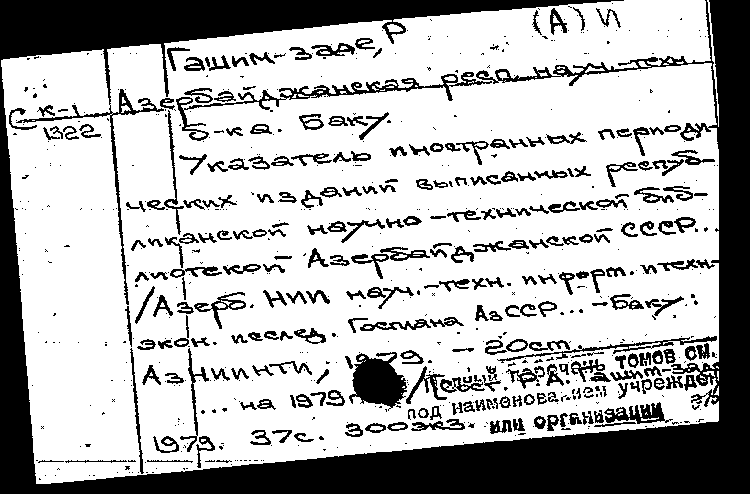 (А) и
Гашим-заде, Р
Азербайджанская респ. науч.-техн.
С к-1
1322
б-ка. Баку.
Указатель иностранных периоди-
ческих изданий выписанных респуб-
ликанской научно-технической биб-
лиотекой Азербайджанской ССР...
/Азерб. НИИ науч.-техн. информ. и техн-
экон. исслед. Госплана АзССР... - Баку:
АзНИИНТИ, 1979. - 20 см.
Полный перечень томов см.
... на 1979 г. /Сост. Р. А. Гашим-заде
под наименованием учрежден
1979. 37с. 300 экз.
или организации